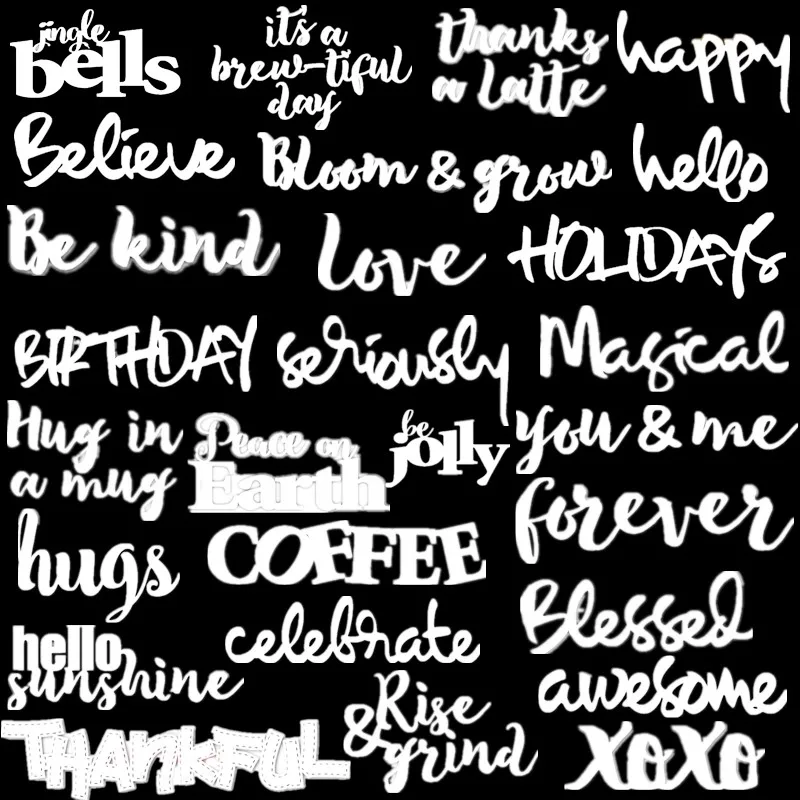 jingle
bells
it's a
brew-tiful
day
thanks
a latte
happy
Believe
Bloom & grow
hello
Be kind
love
HOLIDAYS
BIRTHDAY
seriously
Magical
Hug in
a mug
Peace on
Earth
be
jolly
you & me
forever
hugs
COFFEE
Blessed
hello
sunshine
celebrate
awesome
THANKFUL
Rise
& grind
XOXO